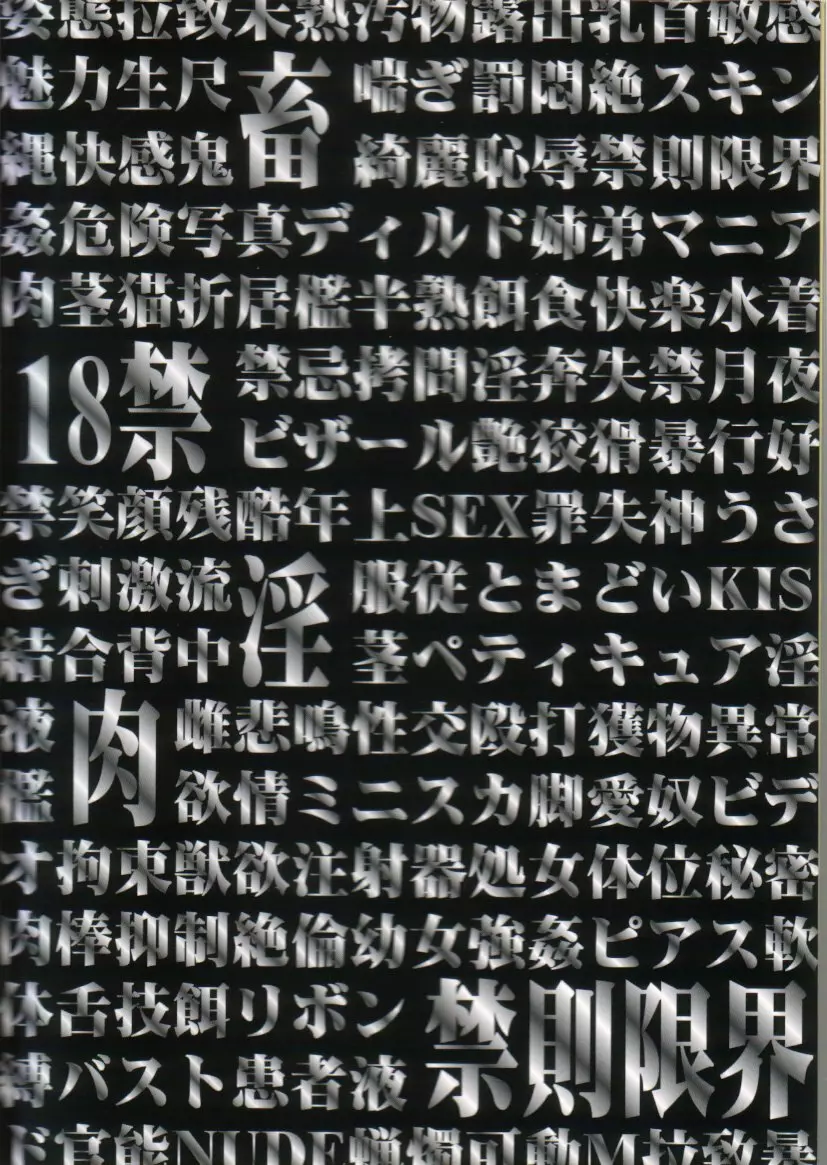 姿態拉致未熟汚物露出乳首敏感
魅力生尺畜喘ぎ罰悶絶スキン
縄快感鬼綺麗恥辱禁則限界
姦危険写真ディルド姉弟マニア
肉茎猫折居檻半熟餌食快楽水着
18禁禁忌拷問淫奔失禁月夜
ビザール艶狡猾暴行好
禁笑顔残酷年上SEX罪失神うさ
ぎ刺激流淫服従とまどいKIS
結合背中茎ペティキュア淫
液肉雌悲鳴性交殴打獲物異常
檻欲情ミニスカ脚愛奴ビデ
オ拘束獣欲注射器処女体位秘密
肉棒抑制絶倫幼女強姦ピアス軟
体舌技餌リボン禁則限界
縛バスト患者液
ド官能NUDE蝋燭可動M拉致暴